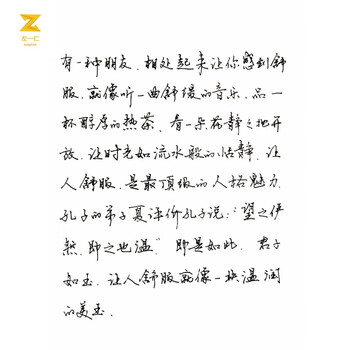 左一仁
有一种朋友，相处起来让你感到舒
服，就像听一曲舒缓的音乐，品一
杯醇厚的热茶，看一朵花静静地开
放，让时光如流水般的恬静，让
人舒服，是最顶级的人格魅力，
孔子的弟子夏评价孔子说："望之俨
然，即之也温"，即是如此，君子
如玉，让人舒服就像一块温润
的美玉，